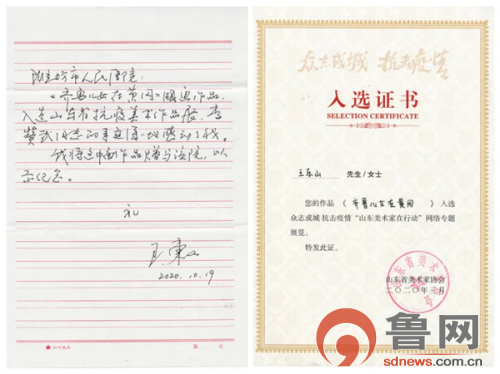 潍坊市人民医院:
《齐鲁儿女在黄冈》国画作品
入选山东省抗疫美术作品展,李
我将这幅作品赠与医院,以
示纪念。
礼
2020.10.19
众志成城 抗击疫情
入选证书
SELECTION CERTIFICATE
王东山 先生/女士
您的作品《齐鲁儿女在黄冈》入选
众志成城 抗击疫情“山东美术家在行动”网络专题
展览。
特发此证。
山东省美术家协会
二〇二〇年三月
鲁网
sdnews.com.cn